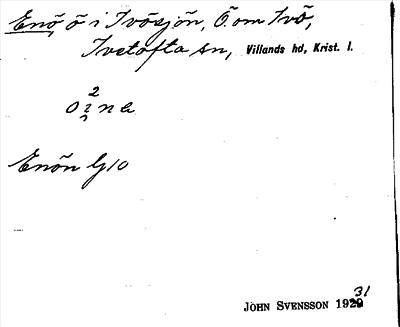 Enö, ö i Ivösjön, Ö om Ivö,
Ivetofta sn, Villands hd, Krist. l.
Enön G10
JOHN SVENSSON 1931